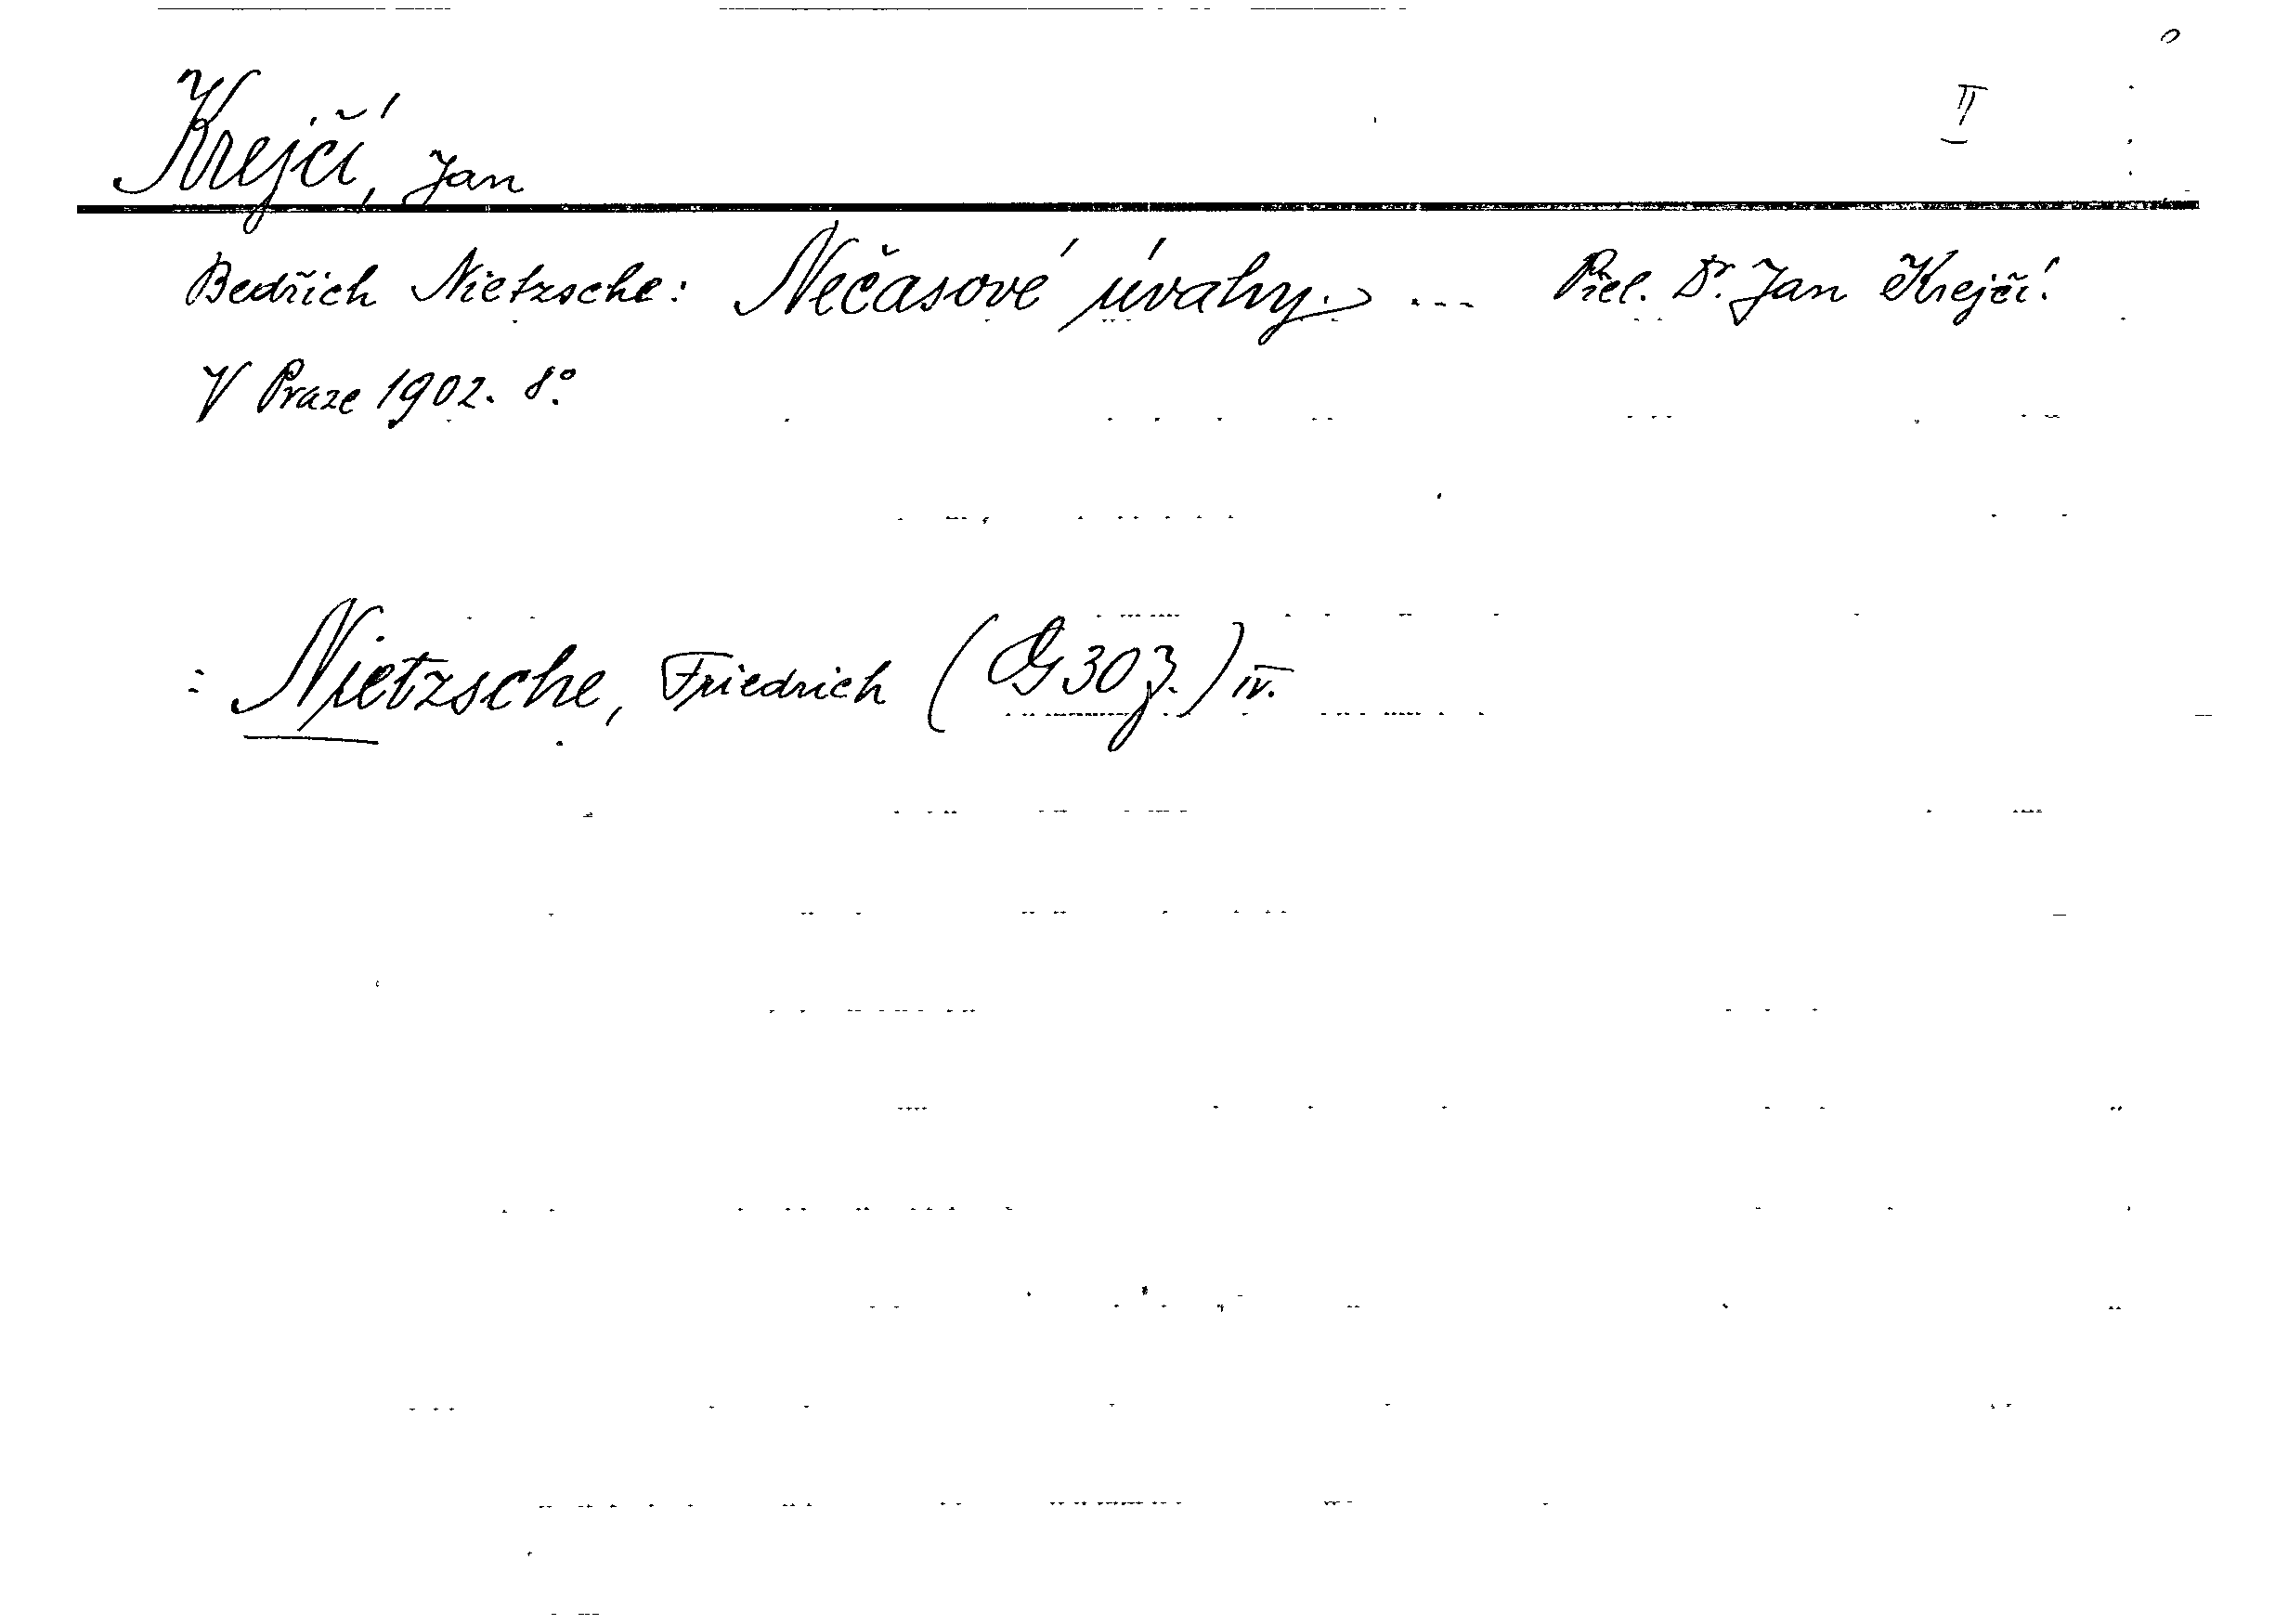 Krejčí, Jan
II
Bedřich Nietzsche: Nečasové úvahy. ... Přel. Dr. Jan Krejčí.
V Praze 1902. 8°.
= Nietzsche, Friedrich (G 30 z.) IV.